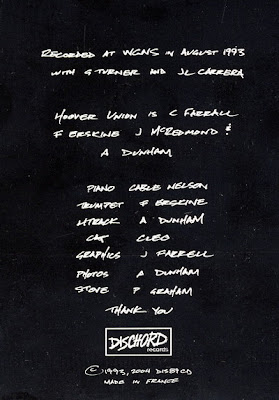 RECORDED AT WGNS IN AUGUST 1993
WITH G TURNER AND JL CARRERA
HOOVER UNION IS C FARRALL
F ERSKINE J McREDMOND &
A DUNHAM
PIANO CABLE NELSON
TRUMPET F ERSKINE
4TRACK A DUNHAM
CAT CLEO
GRAPHICS J FARRELL
PHOTOS A DUNHAM
STOVE P GRAHAM
THANK YOU
DISCHORD
records
© 1993, 2004 DIS89CD
MADE IN FRANCE